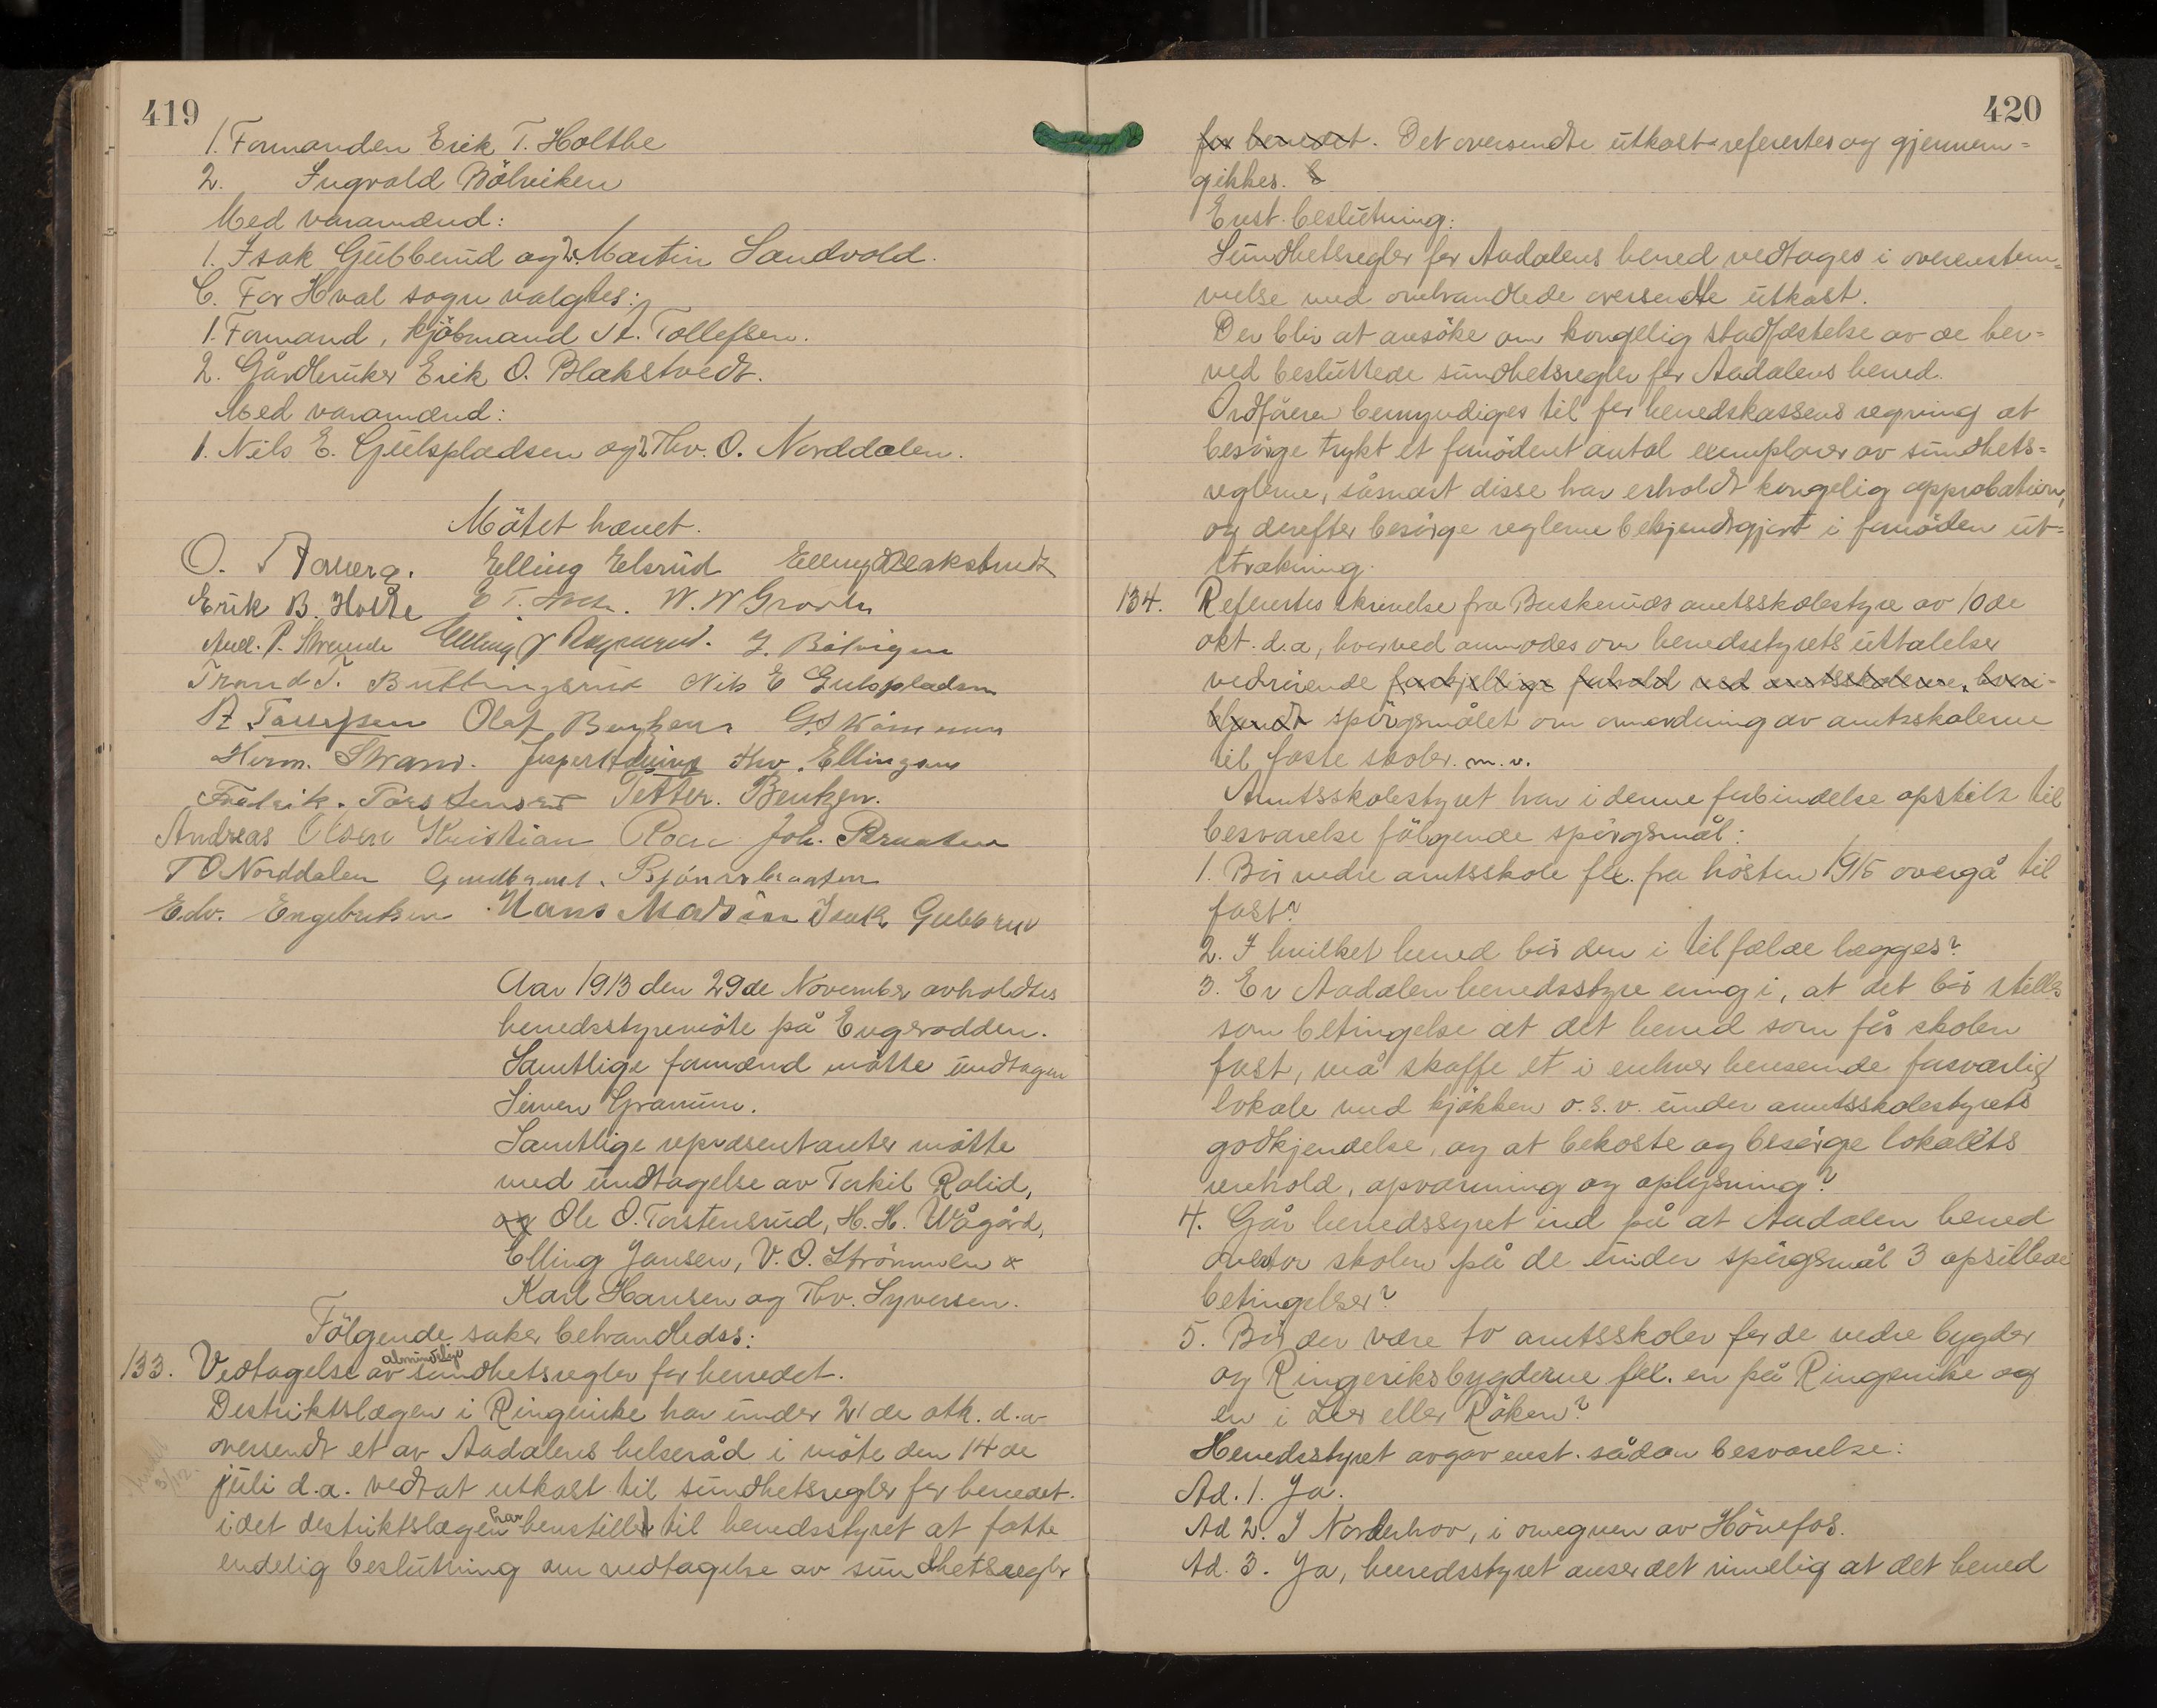 419
1. Formanden Erik T. Holthe
2. Ingvald Bölviken
Med varamænd:
1. Isak Gübberud og 2. Martin Sandvold.
C. For Hval sogn valgtes:
1. Formand, kjöbmand A. Tollefsen.
2. Gårdbruker Erik O. Blakstvedt.
Med varamænd:
1. Nils E. Gulspladsen og 2 Thv. O. Norddalen.
Mötet hævet.
Elling Elsrud
Erik B. Holte
And. P. Strande
Trond T. Buttingsrud Nils E Gulspladsen
Olaf
Herm. Strand. Thv. Ellingsen
Fredrik Petter. Bentzen.
Andreas Olsen Kristian Joh. Braaten
T O Norddalen
Edv. Engebretsen Hans Madsen Isak Gubberud
Aar 1913 den 29de November avholdtes
herredsstyremöte på Engerodden.
Samtlige formænd mötte undtagen
Simen Granum.
Samtlige repræsentanter mötte
med undtagelse av Torkil Rolid,
og Ole O. Torstensrud, H. H. Wågård,
Elling Jansen, V. O. Strömmen
Karl Hansen og Thv. Syversen.
Fölgende saker behandledss:
133. Vedtagelse av almindelige sundhetsregler for herredet.
Destriktslægen i Ringerike har under 21de otk. d.a
oversendt et av Aadalens helseråd i möte den 14de
3/12.
juli d.a. vedtat utkast til sundhetsregler for herredet.
idet destriktslægen har henstillet til herredsstyret at fatte
endelig beslutning om vedtagelse av sundhetsregler
420
for herredet. Det oversendte utkast referertes og gjennem=
gikkes.
Enst. beslutning:
Sundhetsregler for Aadalens herred vedtages i overenstem=
melse med omhandlede oversendte utkast.
Der blir at ansöke om kongelig stadfæstelse av de her=
ved besluttede sundhetsregler for Aadalens herred.
Ordföreren bemyndiges til for herredskassens regning at
besörge trykt et fornödent antal exemplarer av sundhets=
reglerne, såsnart disse har erholdt kongelig approbation,
og derefter besörge reglerne bekjendtgjort i fornöden ut=
strækning.
134. Referertes skrivelse fra Buskeruds amtsskolestyre av 10de
okt. d.a, hvorved anmodes om herredsstyrets uttalelser
vedrörende forskjellige forhold ved amtsskolerne, hvori-
blandt spörgsmålet om omordning av amtsskolerne
til faste skoler. m.v.
Amtsskolestyret har i denne forbindelse opstilt til
besvarelse fölgende spörgsmål:
1. Bör nedre amtsskole flx. fra hösten 1915 overgå til
fast?
2. I hvilket herred bör den i tilfælde lægges?
3. Er Aadalen herredsstyre enig i, at det bör stilles
som betingelse at det herred som får skolen
fast, må skaffe et i enhver henseende forsvarlig
lokale med kjökken o.s.v. under amtsskolestyrets
godkjendelse, og at bekoste og besörge lokalets
renhold, opvarming og oplysning?
4. Går herredssyret ind på at Aadalen herred
skolen på de under spörgsmål 3 opstillede
betingelser?
5. Bör der være to amtsskoler for de nedre bygder
og Ringeriksbygderne fex. en på Ringerike og
en i Lier eller Röken?
Herredsstyret avgav enst. sådan besvarelse:
Ad. 1. Ja.
Ad 2. I Norderhov, i omegnen av Hönefos.
Ad. 3. Ja, herredsstyret anser det rimelig at det herred